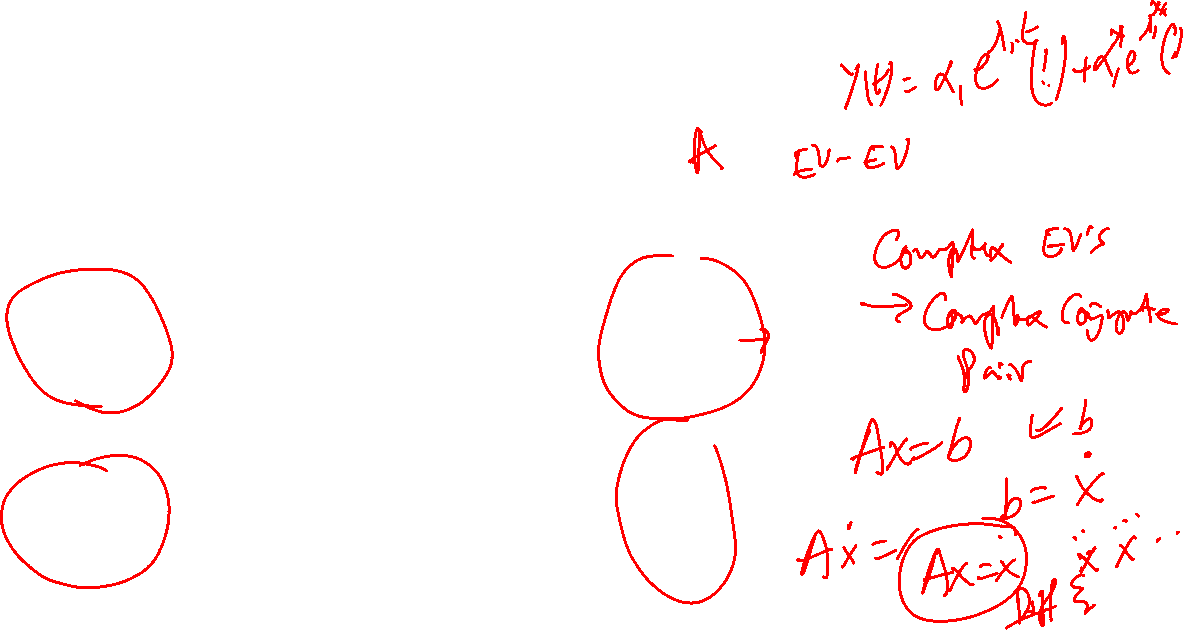 y(t) = α₁ e^{λ₁t} ( ⋮ ) + α₁* e^{λ₁*} ( )
A EV - EV
Complex EV's
→ Complex Conjugate
Pair
Ax = b ↙ b
b = ẋ
Aẋ = Ax = ẋ ẍ x⃛ ..
Diff {